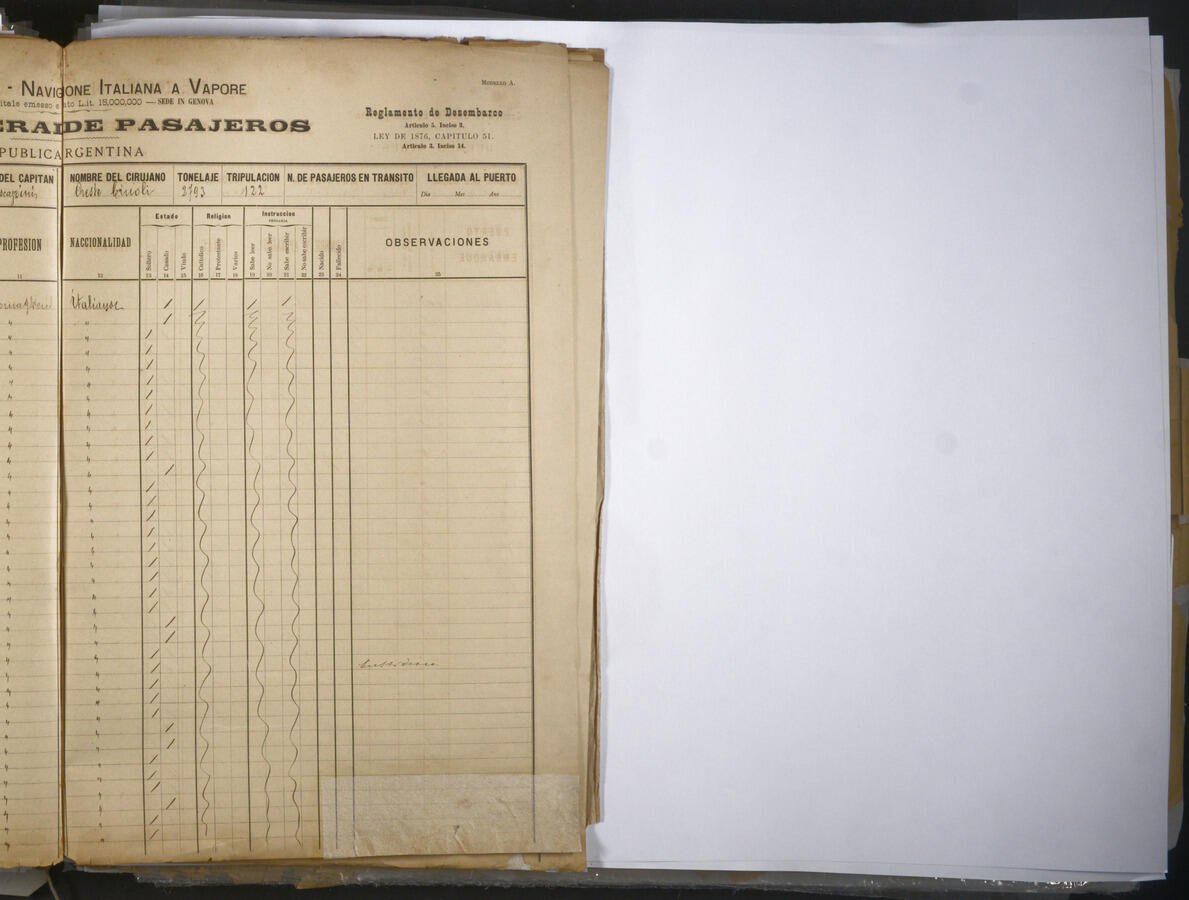 - NAVIGONE ITALIANA A VAPORE
MODELLO A.
itale emesso e ato L.it. 15,000,000 — SEDE IN GENOVA
ERAL DE PASAJEROS
PUBLICA ARGENTINA
Reglamento de Desembarco
Articulo 5. Inciso 2.
LEY DE 1876, CAPITULO 51.
Articulo 3. Inciso 14.
DEL CAPITAN NOMBRE DEL CIRUJANO TONELAJE TRIPULACION N. DE PASAJEROS EN TRANSITO LLEGADA AL PUERTO
Oreste 2793 122 Dia Mes Ano
PROFESION NACCIONALIDAD Estado Religion Instruccion PRIMARIA OBSERVACIONES
Soltero Casado Viudo Catolico Protestante Varios Sabe leer No sabe leer Sabe escribir No sabe escribir Nacido Fallecido
11 12 13 14 15 16 17 18 19 20 21 22 23 24 25
Italiana